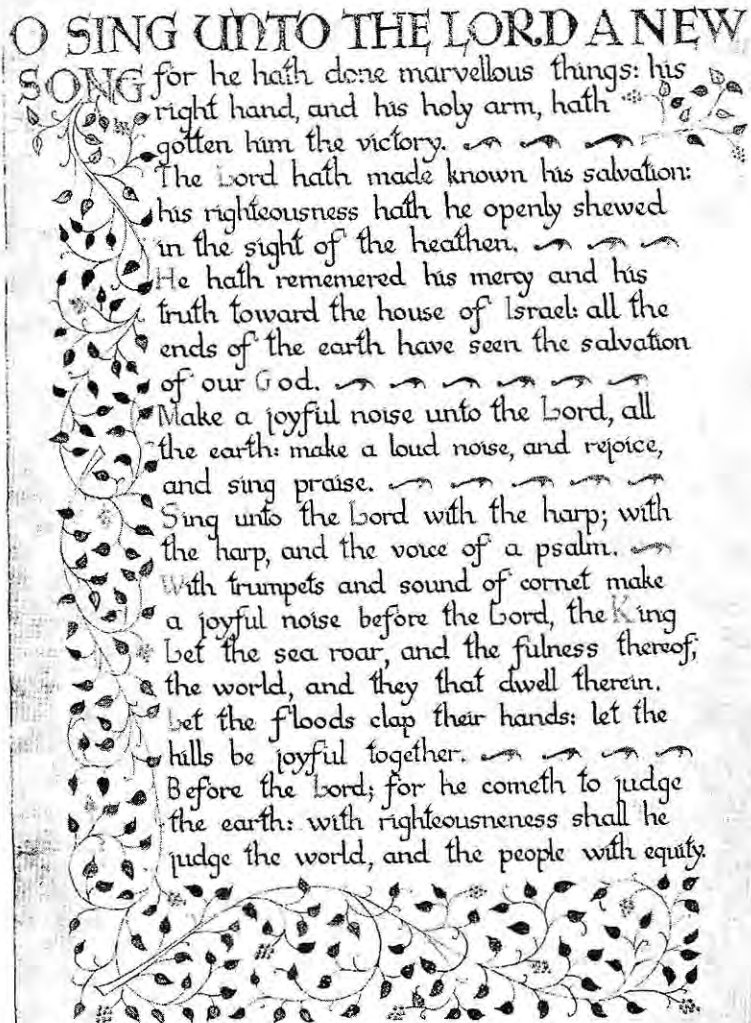 O SING UNTO THE LORD A NEW
SONG for he hath done marvellous things: his
right hand, and his holy arm, hath
gotten him the victory.
The Lord hath made known his salvation:
his righteousness hath he openly shewed
in the sight of the heathen.
He hath rememered his mercy and his
truth toward the house of Israel: all the
ends of the earth have seen the salvation
of our God.
Make a joyful noise unto the Lord, all
the earth: make a loud noise, and rejoice,
and sing praise.
Sing unto the Lord with the harp; with
the harp, and the voice of a psalm.
With trumpets and sound of cornet make
a joyful noise before the Lord, the King
Let the sea roar, and the fulness thereof;
the world, and they that dwell therein.
Let the floods clap their hands: let the
hills be joyful together.
Before the Lord; for he cometh to judge
the earth: with righteousneness shall he
judge the world, and the people with equity.